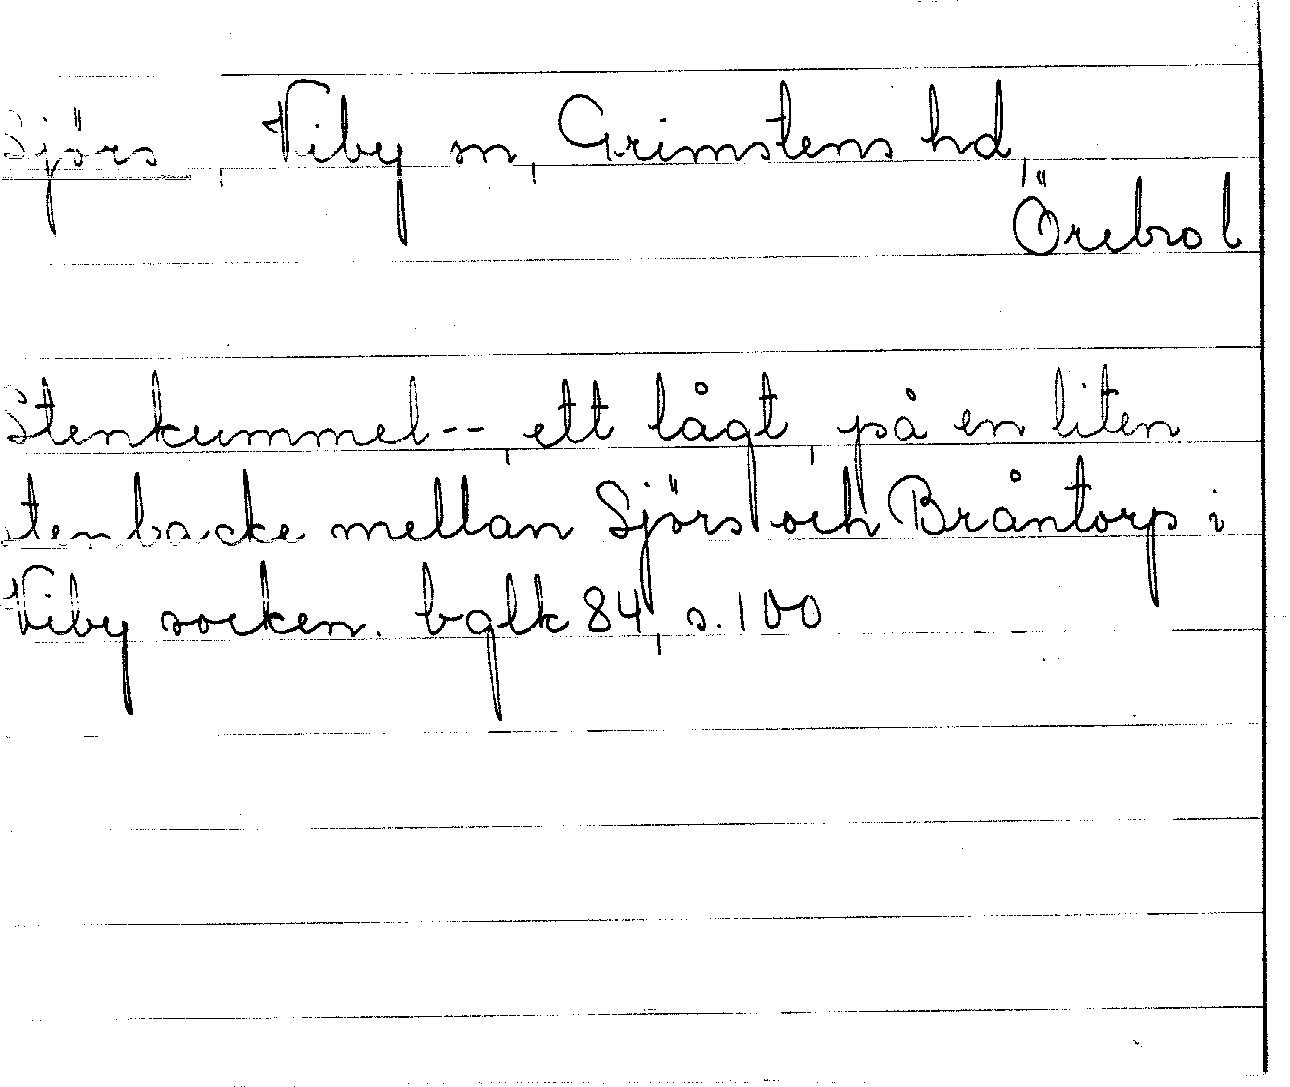 Sjörs Viby sn, Grimstens hd,
Örebro l
Stenkummel-- ett lågt, på en liten
stenbacke mellan Sjörs och Bråntorp i
Viby socken. bglk 84, s. 100